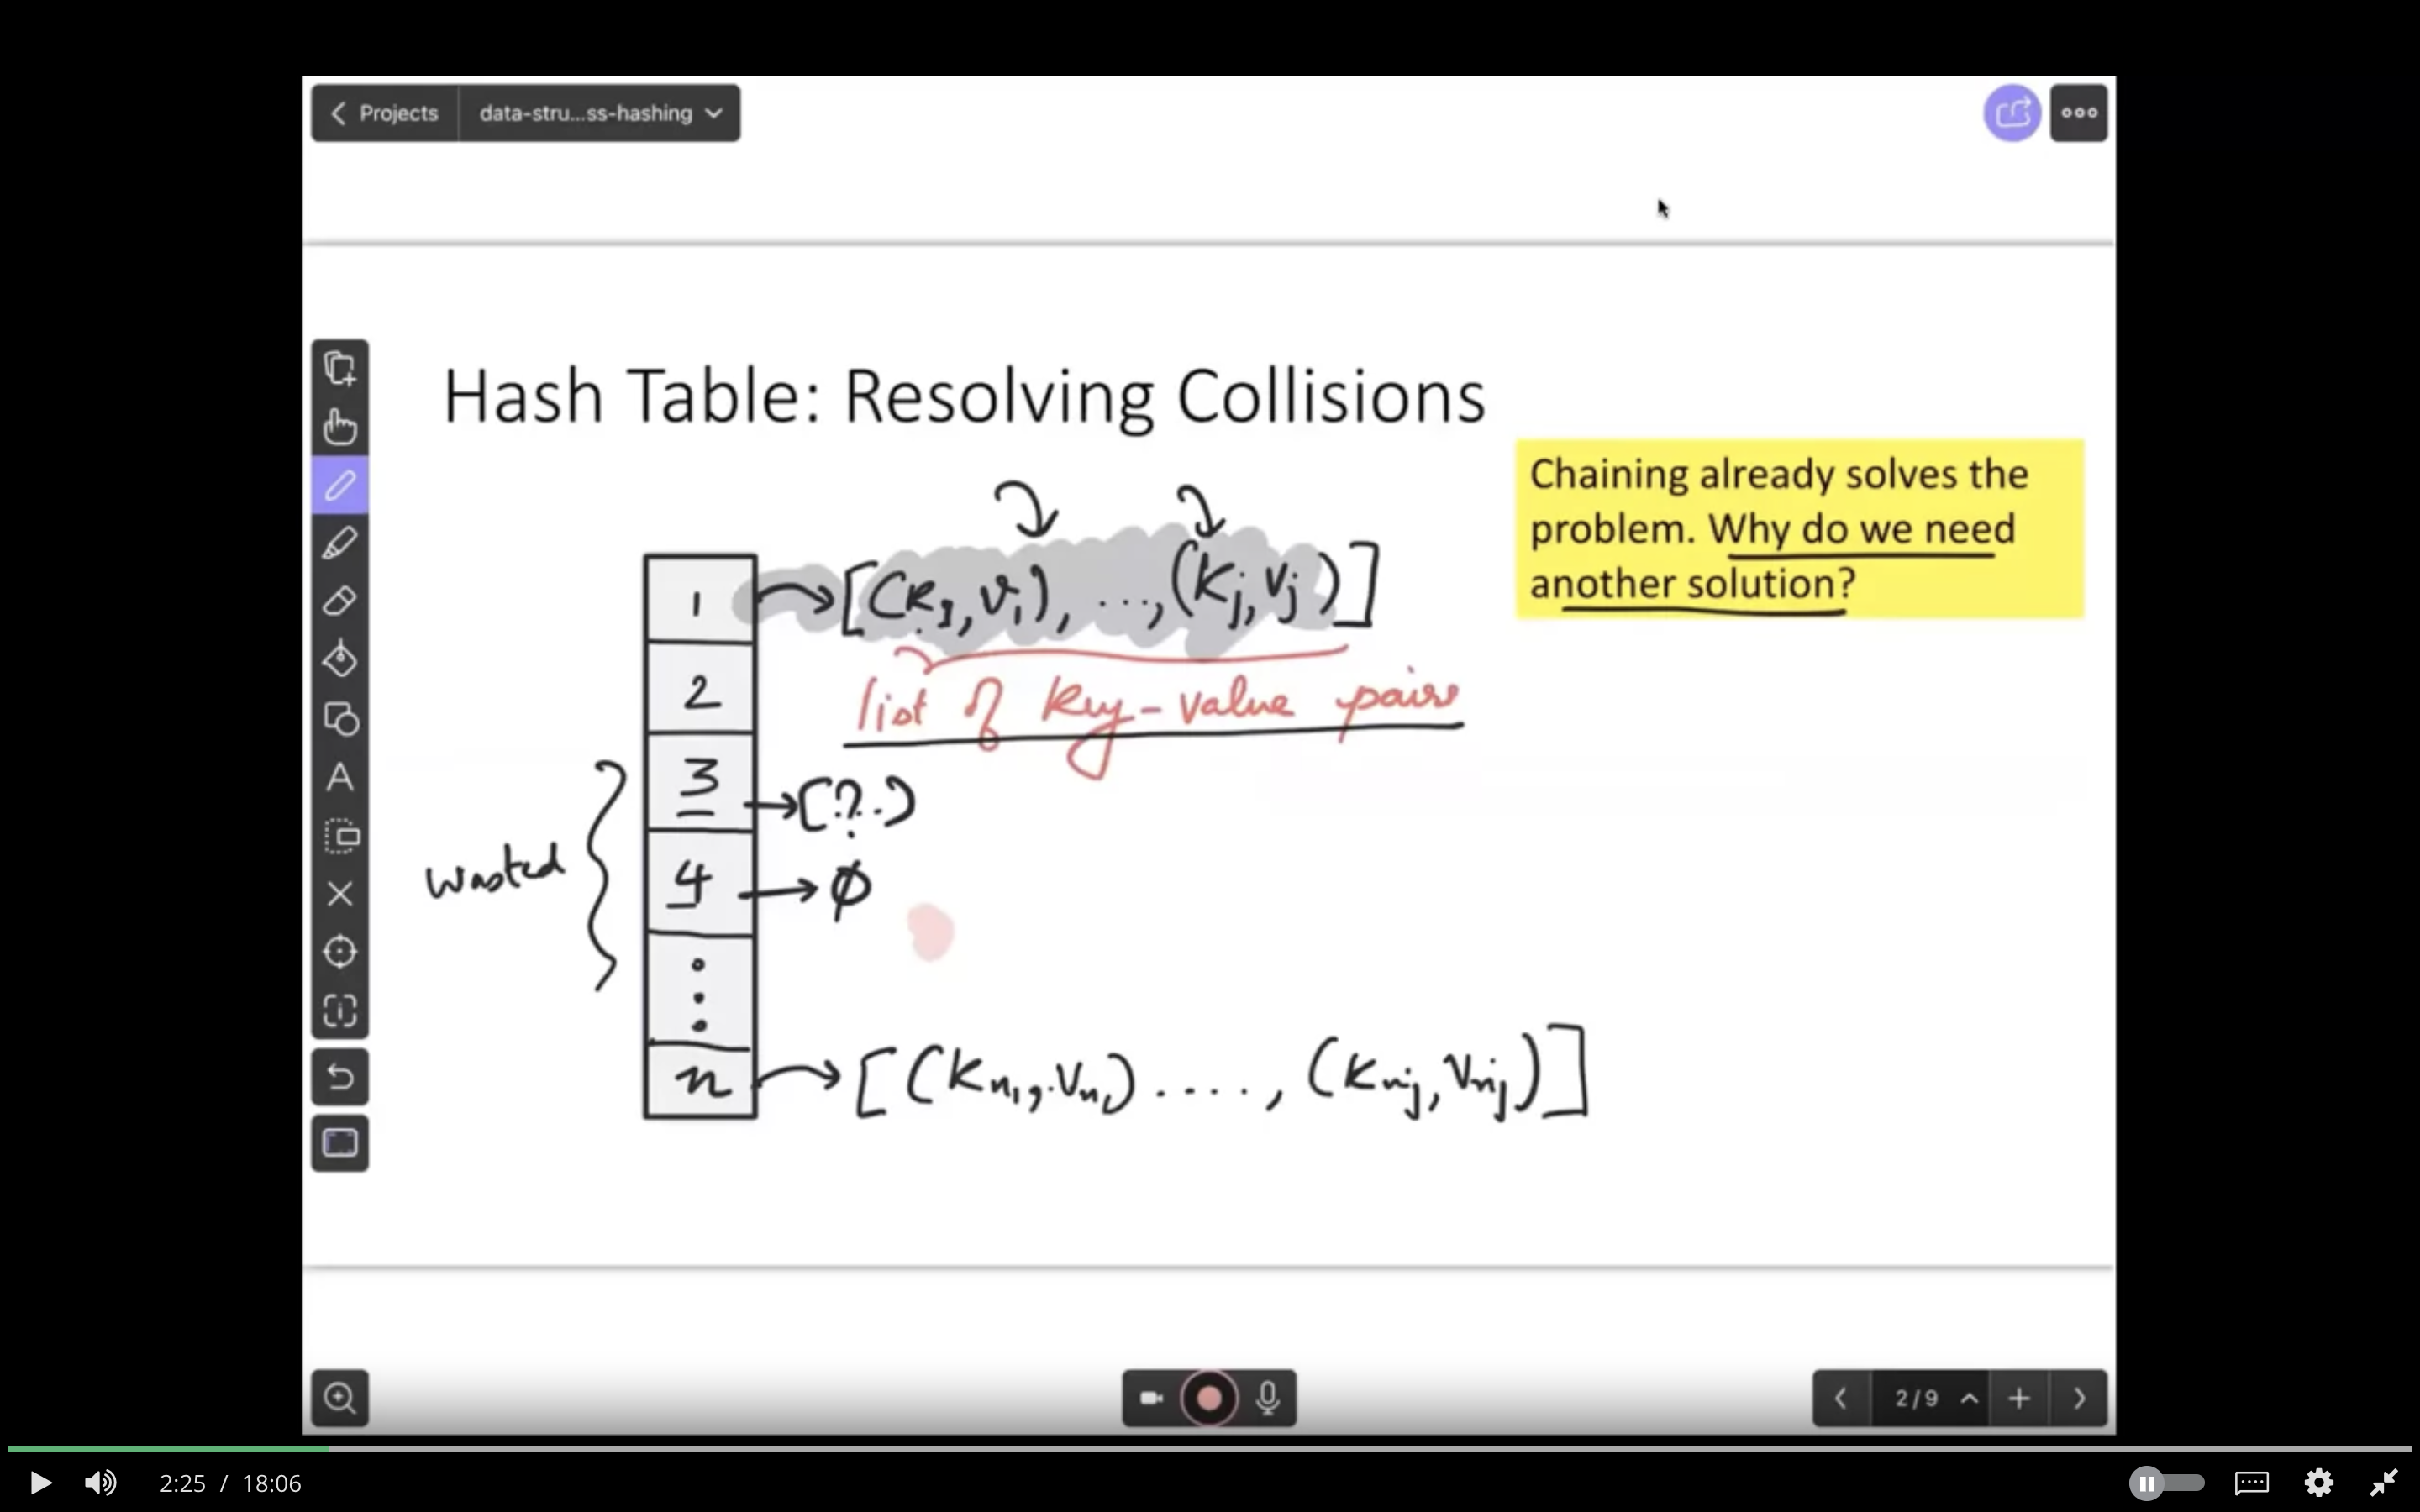 Projects data-stru...ss-hashing
Hash Table: Resolving Collisions
Chaining already solves the
problem. Why do we need
another solution?
1 → [(K1, v1), ..., (Kj, vj)]
2
list of key-value pairs
3 → [?.)
wasted
4 → ϕ
n → [(Kn1, vn1) ...., (Knj, vnj)]
2/9
2:25 / 18:06